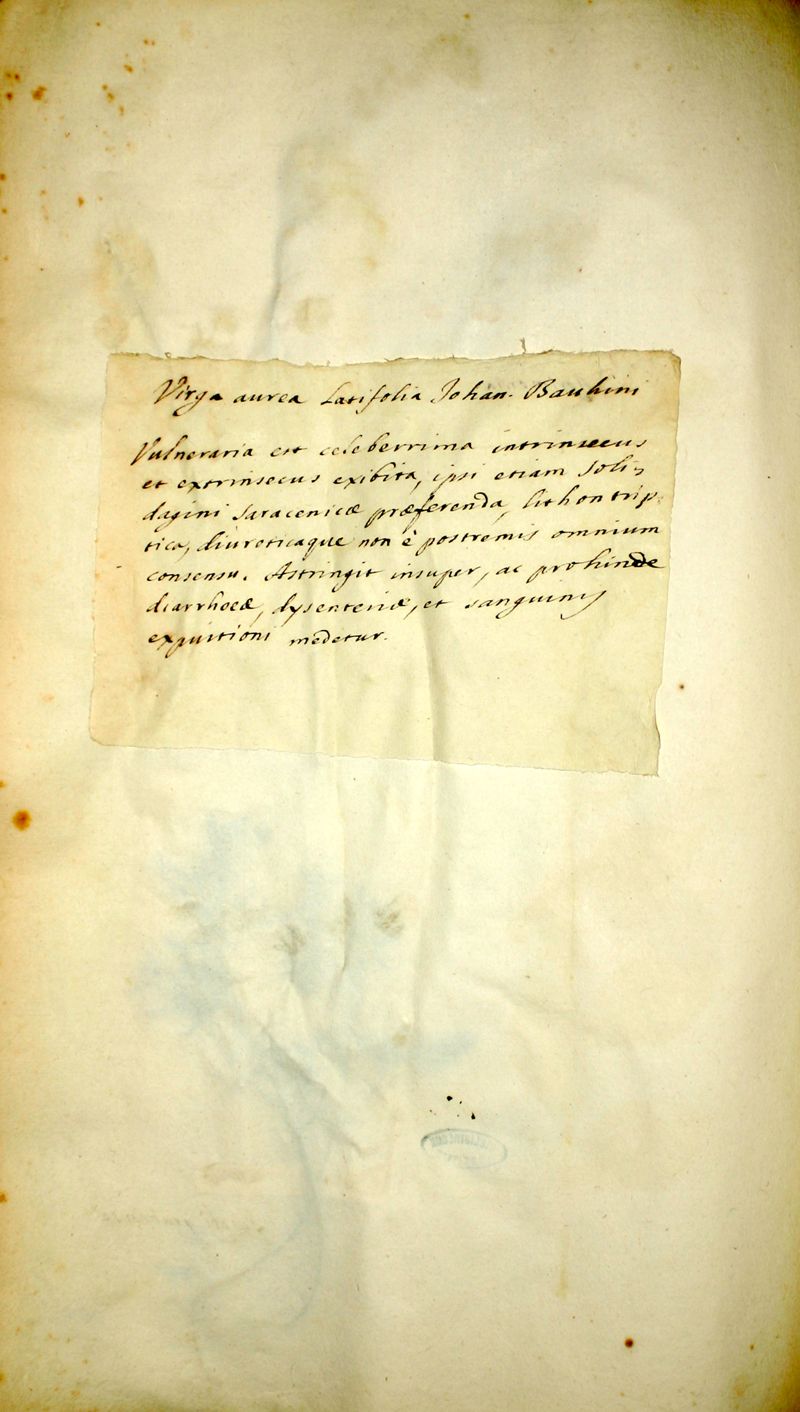 Virga aurea Latifolia Johan. Bauhini
Vulneraria est celeberrima intrinsecus
et extrinsecus exibita, ipsi etiam Soli-
dagini Saracenicæ præferenda, lithontrip-
tica, diureticaque non è postremis omnium
consensu. Astringit insuper, ac prohinde
diarrhoeæ, dysenteriæ, et sanguinis
expuitioni medetur.